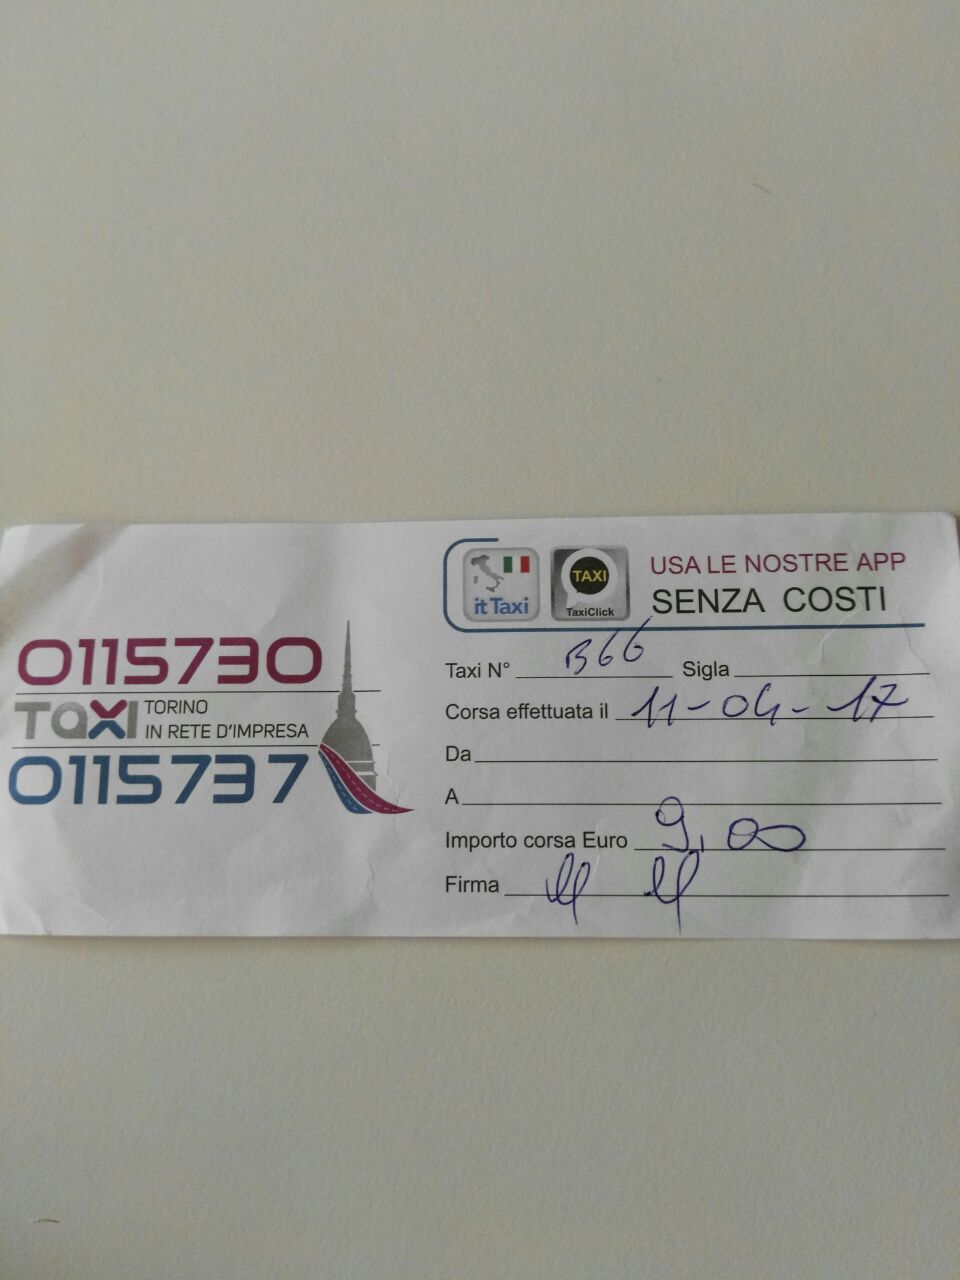 0115730
TAXI TORINO
IN RETE D'IMPRESA
0115737
it Taxi
TAXI
TaxiClick
USA LE NOSTRE APP
SENZA COSTI
Taxi N° B66 Sigla
Corsa effettuata il 11-04-17
Da
A
Importo corsa Euro 9,00
Firma